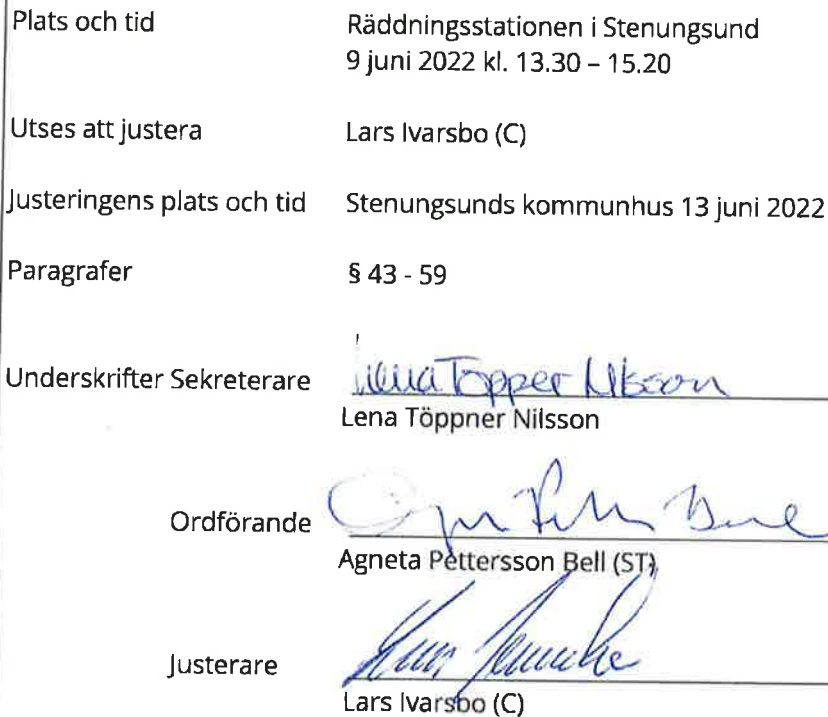 Plats och tid Räddningsstationen i Stenungsund
9 juni 2022 kl. 13.30 – 15.20
Utses att justera Lars Ivarsbo (C)
Justeringens plats och tid Stenungsunds kommunhus 13 juni 2022
Paragrafer § 43 - 59
Underskrifter Sekreterare Lena Töppner Nilsson
Lena Töppner Nilsson
Ordförande
Agneta Pettersson Bell (ST)
Justerare
Lars Ivarsbo (C)